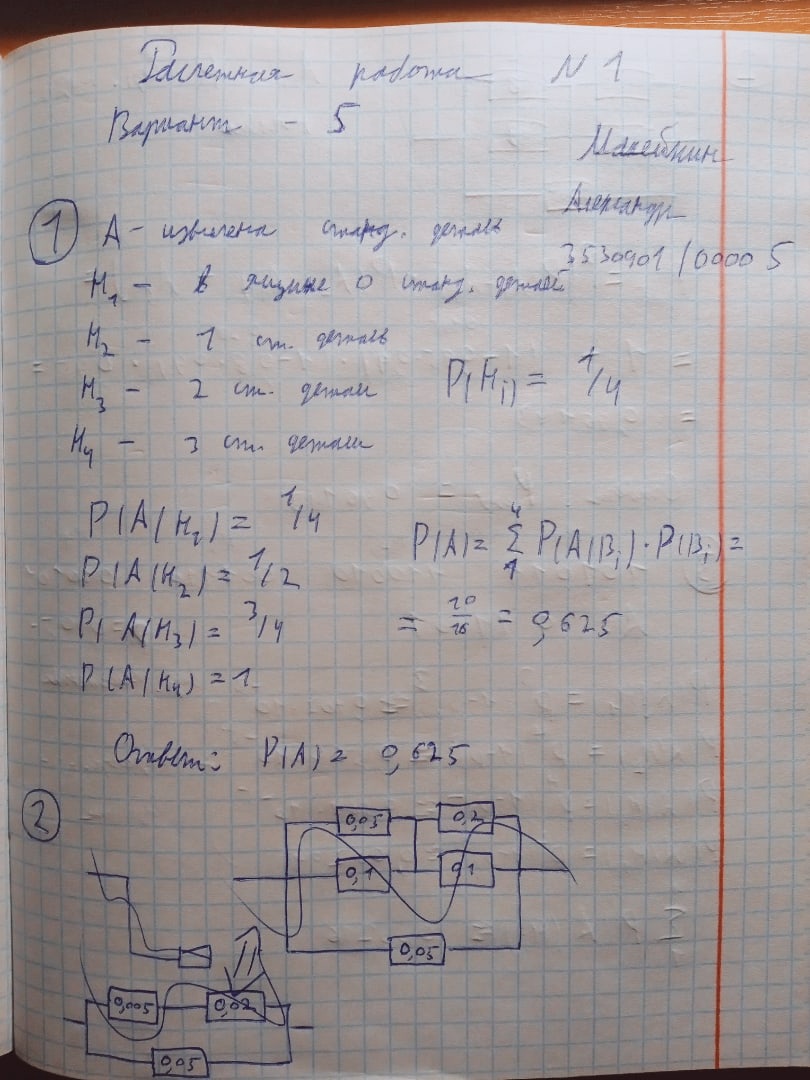 Расчетная работа N 1
Вариант - 5
Александр
3530901/00005
1 А - извлечена станд. деталь
H₁ - в ящике 0 станд. деталей
H₂ - 1 ст. деталь
H₃ - 2 ст. детали
P(Hi) = 1/4
H₄ - 3 ст. детали
P(A/H₁) = 1/4
P(A/H₂) = 1/2
P(A/H₃) = 3/4
P(A/H₄) = 1
P(A) = 4 Σ 1 P(A/Bi) · P(Bi) =
= 10/16 = 0,625
Ответ: P(A) = 0,625
2
0,05 0,2
0,1 0,1
0,05
0,005 0,02
0,05